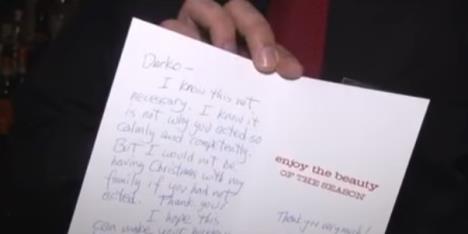 Darko-
I know this not
necessary. I know it
is not why you acted so
calmly and competently.
But I would not be
having Christmas with my
family if you had not
acted. Thank you!
I hope this
can make your
enjoy the beauty
OF THE SEASON
Thank you very much!